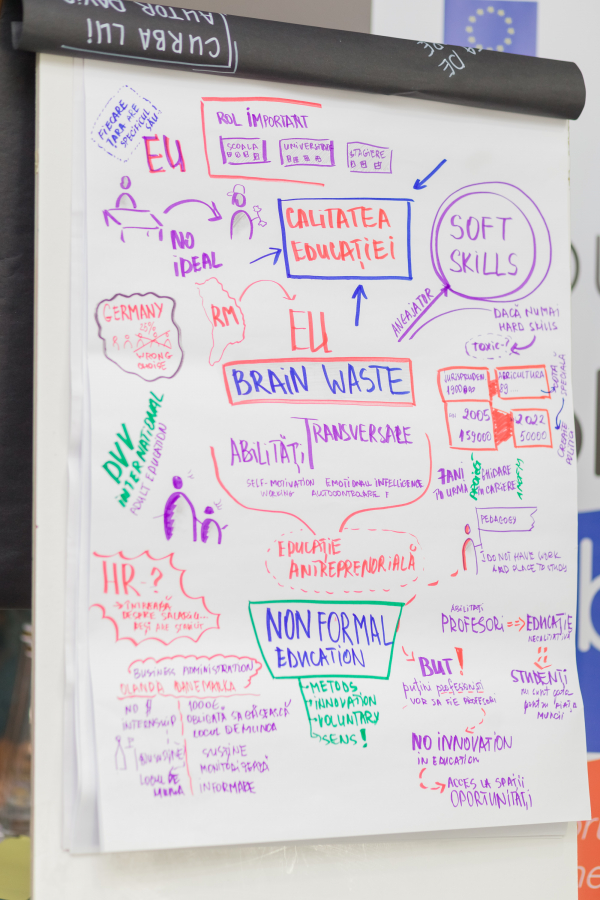 CURBA LUI
AUTOR
DE
FIECARE
ȚARA ARE
SPECIFICUL
SĂU!
EU
ROL IMPORTANT
ȘCOALA
UNIVERSITATE
STAGIERE
NO
IDEAL
CALITATEA
EDUCAȚIEI
SOFT
SKILLS
ANGAJATOR
DACĂ NUMAI
HARD SKILLS
TOXIC?
GERMANY
28%
WRONG
CHOISE
RM
EU
BRAIN WASTE
JURISPRUDEN
AGRICULTURA
89
2005
159000
2022
50000
DVV
INTERNATIONAL
ADULT EDUCATION
ABILITĂȚI TRANSVERSALE
SELF-MOTIVATION EMOTIONAL INTELLIGENCE
WORKING AUTOCONTROLARE
7 ANI
ÎN URMĂ
GHIDARE
ÎN CARIERĂ
PEDAGOGY
I DO NOT HAVE WORK
AND PLACE TO STUDY
EDUCAȚIE
ANTREPRENORIALĂ
HR-?
ÎNTREABĂ
DESPRE SALARIU
NON FORMAL
EDUCATION
METODS
INNOVATION
VOLUNTARY
SENS!
ABILITATI
PROFESORI => EDUCAȚIE
BUT!
puțini profesioniști
VOR SA FIE PROFESORI
STUDENȚI
NO INNOVATION
IN EDUCATION
ACCES LA SPAȚII
OPORTUNITĂȚI
BUSINESS ADMINISTRATION
OLANDA DANEMARKA
NO $
INTERNSHIP
1000€
OBLIGATĂ SĂ GĂSEASCĂ
LOCUL DE MUNCA
LOCUL DE
MUNCĂ
SUSȚINE
MONITORIZEAZĂ
INFORMARE